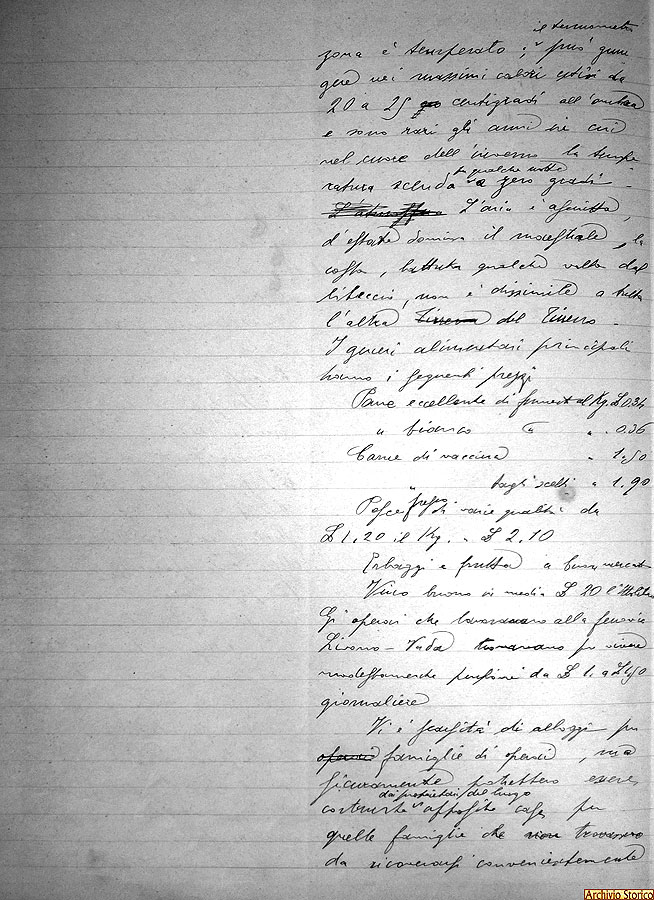 il termometro
zona è temperato; può giun
gere nei massimi calori estivi da
20 a 25 centigradi all'ombra
e sono rari gli anni in cui
nel cuore dell'inverno la tempe
in qualche notte
ratura scenda a zero gradi.
L'aria è asciutta,
d'estate domina il maestrale, la
costa, battuta qualche volta dal
libeccio, non è dissimile a tutta
l'altra Tirrena del Tirreno.
I generi alimentari principali
hanno i seguenti prezzi
Pane eccellente di al Kg. £ 0.34
" bianco " " 0.36
Carne di vaccina " 1.50
" tagli scelti " 1.90
Pesce fresco di varie qualità da
£ 1,20 il Kg. a £ 2.10
Erbaggi e frutta a buon mercato
Vino buono in media £ 20 l'Ettolitro
Gi operai che lavoravano alla ferrovia
Livorno - Vada trovavano per vivere
modestamente pensioni da £ 1. a £ 1,50
giornaliere
Vi è scarsità di alloggi per
operai famiglie di operai, ma
sicuramente potrebbero essere
dai proprietari del luogo
costruite apposite case per
quelle famiglie che non trovavano
da ricoverarsi convenientemente
Archivio Storico